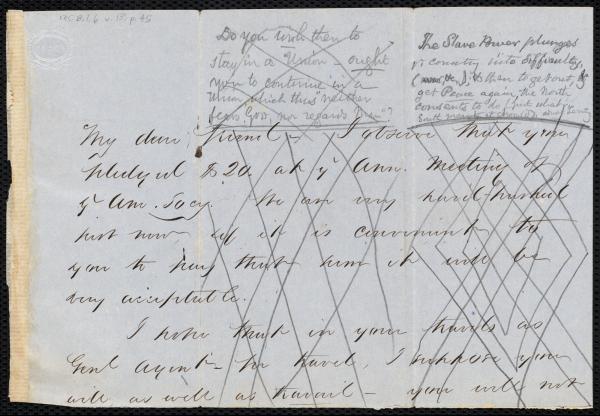 Ms.B.1.6 v.15, p.45
Do you wish then to
stay in a Union – ought
you to continue in a
Union which thus "neither
fears God, nor regards man"?
The Slave Power plunges
ye country into difficulty,
then to get out, &
get Peace again, the North
consents to do just what ye
South
My dear Friend – I observe that you
pledged $20 at ye Ann. Meeting of
ye Am. Socy. We are very hard-pushed
just now & if it is convenient to
you to pay that sum it will be
very acceptable.
I hope that in your travels as
Genl Agent – for travel, I suppose you
will as well as travail – you will not